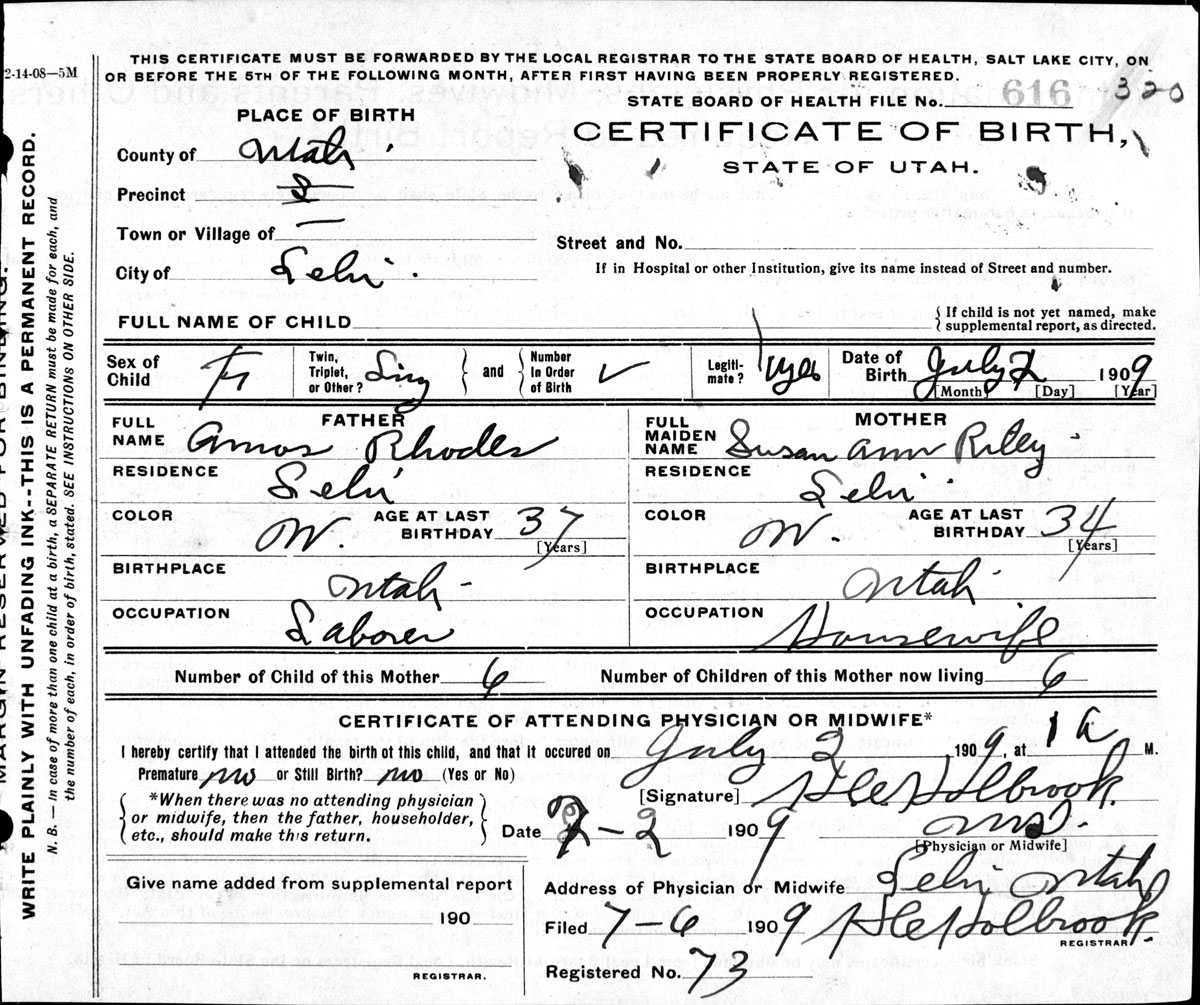 THIS CERTIFICATE MUST BE FORWARDED BY THE LOCAL REGISTRAR TO THE STATE BOARD OF HEALTH, SALT LAKE CITY, ON
2-14-08—5M
OR BEFORE THE 5TH OF THE FOLLOWING MONTH, AFTER FIRST HAVING BEEN PROPERLY REGISTERED.
320
STATE BOARD OF HEALTH FILE No. 616
PLACE OF BIRTH
CERTIFICATE OF BIRTH,
STATE OF UTAH.
County of Utah
Precinct 8
Town or Village of —
Street and No.
City of Lehi.
If in Hospital or other Institution, give its name instead of Street and number.
FULL NAME OF CHILD
{ If child is not yet named, make supplemental report, as directed.
Sex of Child F Twin, Triplet, or Other? Sing } and { Number In Order of Birth ✓ Legitimate? yes Date of Birth July 2 1909
[Month] [Day] [Year]
FATHER
FULL NAME Amos Rhodes
RESIDENCE Lehi
COLOR W. AGE AT LAST BIRTHDAY 37
[Years]
BIRTHPLACE Utah
OCCUPATION Laborer
MOTHER
FULL MAIDEN NAME Susan Ann Riley
RESIDENCE Lehi
COLOR W. AGE AT LAST BIRTHDAY 34
[Years]
BIRTHPLACE Utah
OCCUPATION Housewife
Number of Child of this Mother 6 Number of Children of this Mother now living 6
CERTIFICATE OF ATTENDING PHYSICIAN OR MIDWIFE*
I hereby certify that I attended the birth of this child, and that it occured on July 2 1909, at 1 a M.
Premature no or Still Birth? no (Yes or No)
[Signature] Holbrook
{ *When there was no attending physician
or midwife, then the father, householder,
etc., should make this return. }
Date 7-2 1909
MD.
[Physician or Midwife]
Give name added from supplemental report
190
REGISTRAR.
Address of Physician or Midwife Lehi Utah
Filed 7-6 1909 Holbrook.
REGISTRAR
Registered No. 73
MARGIN RESERVED FOR BINDING.
WRITE PLAINLY WITH UNFADING INK--THIS IS A PERMANENT RECORD.
N. B. — in case of more than one child at a birth, a SEPARATE RETURN must be made for each, and
the number of each, in order of birth, stated. SEE INSTRUCTIONS ON OTHER SIDE.